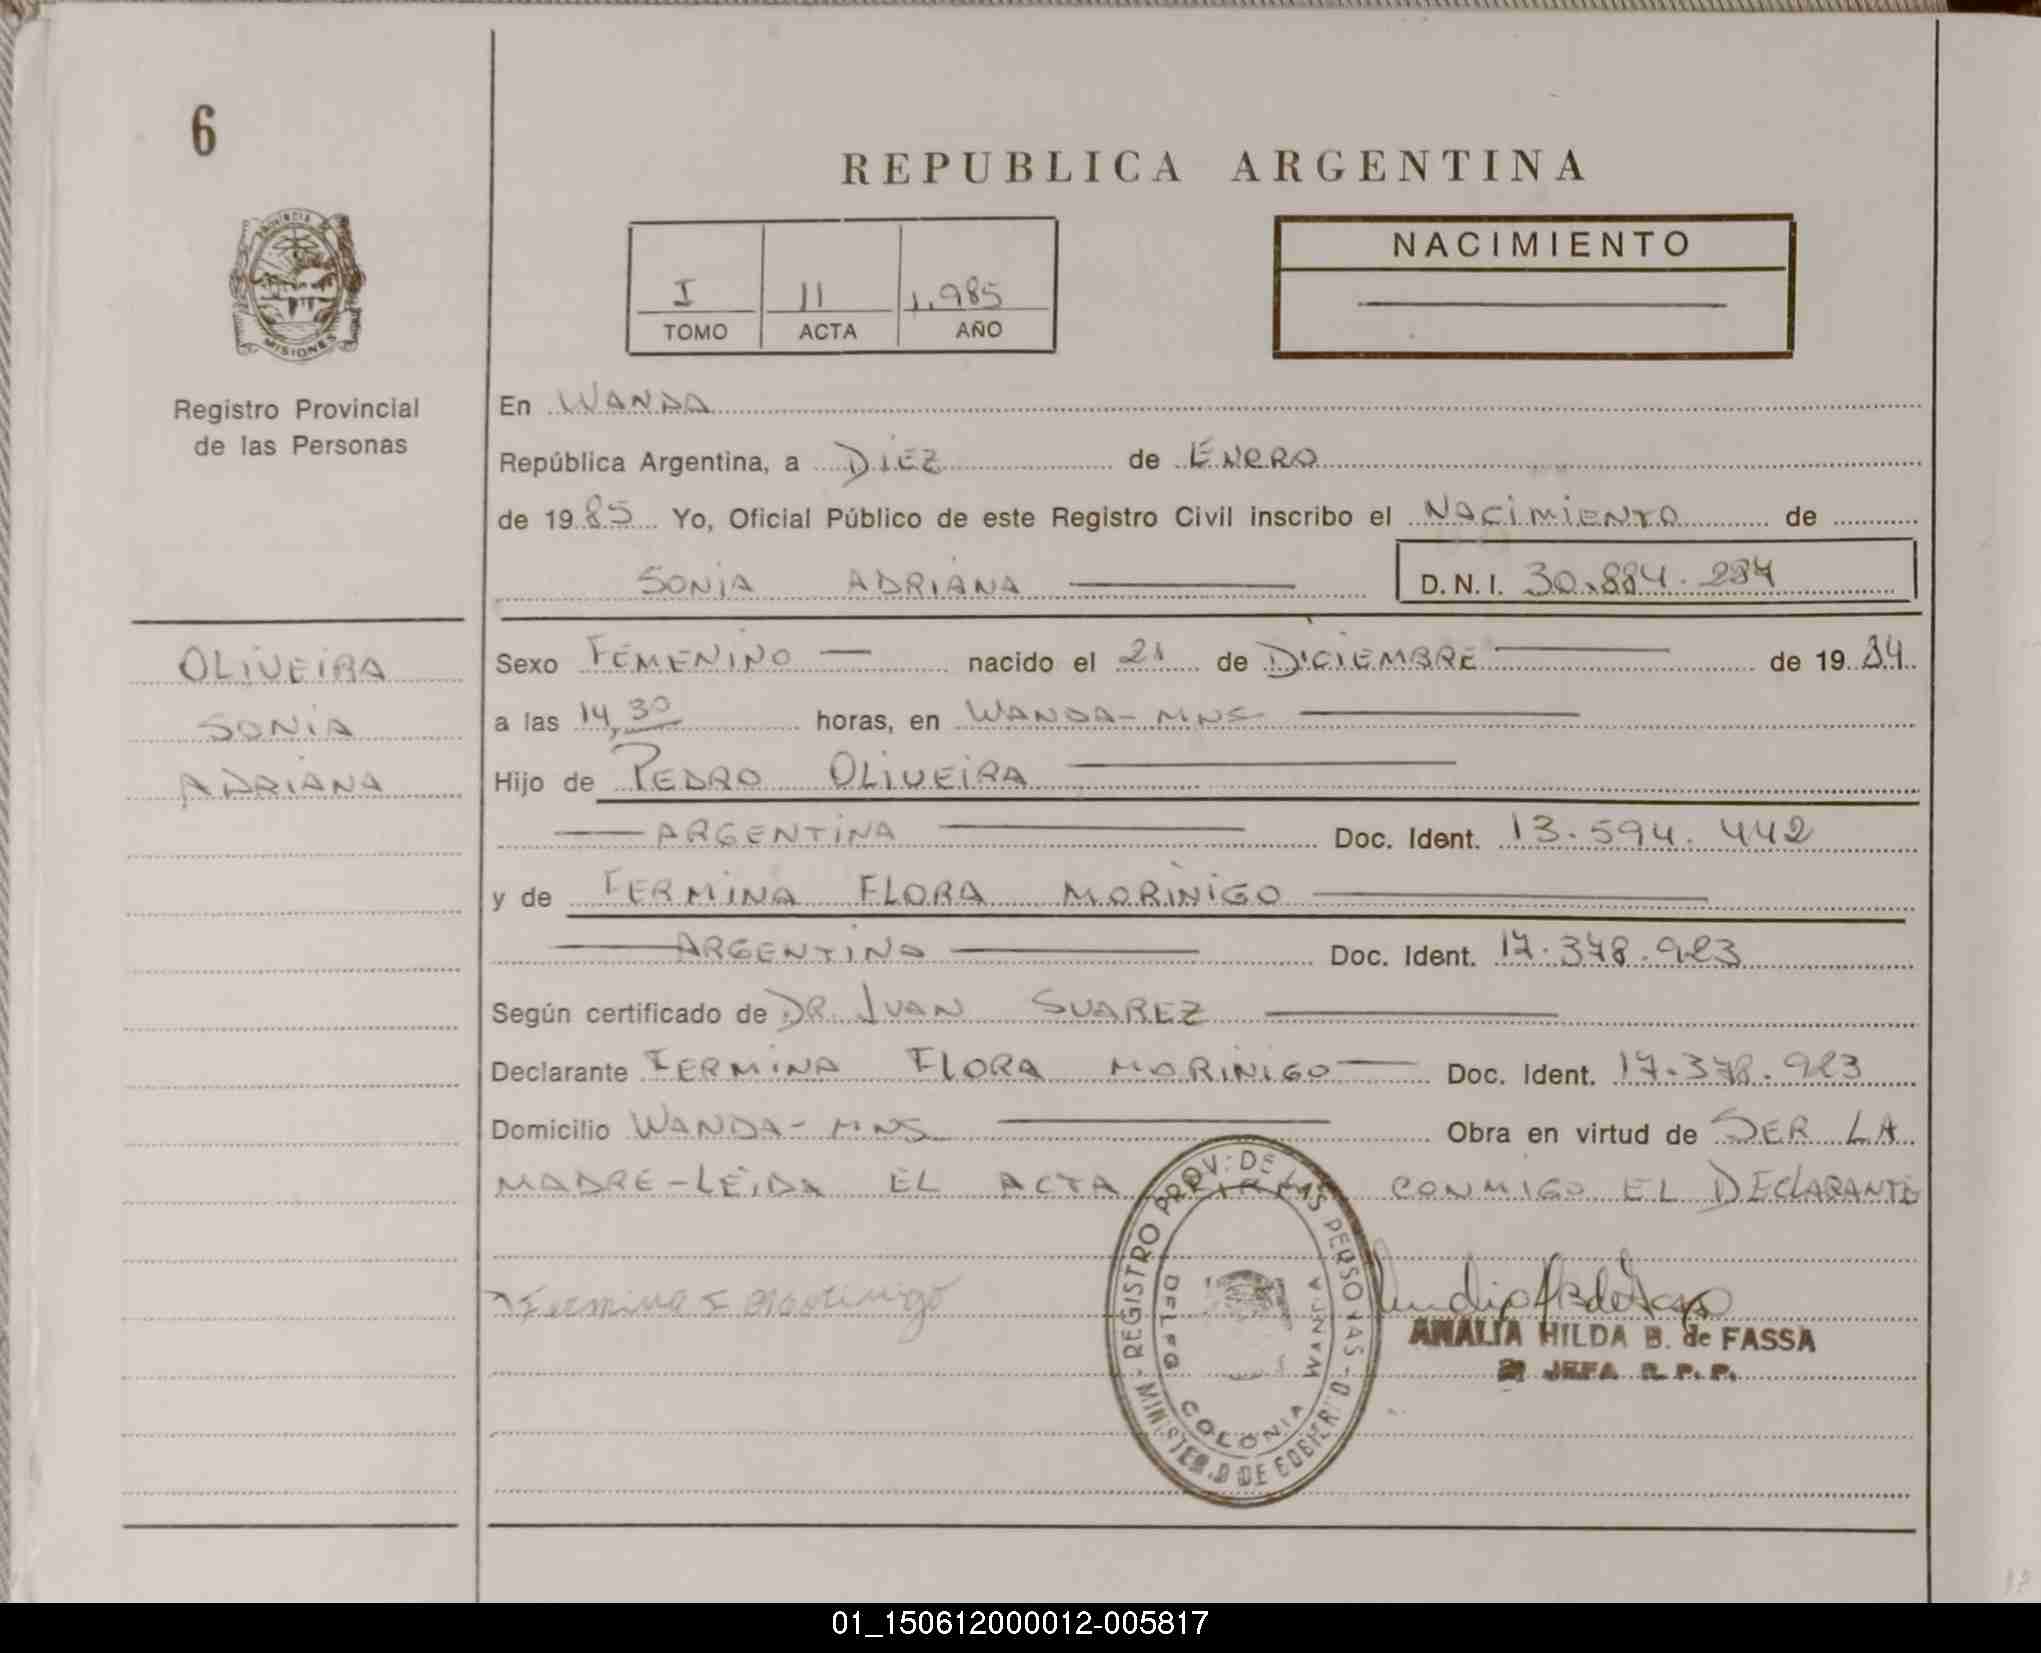 6
REPUBLICA ARGENTINA
PROVINCIA DE
MISIONES
Registro Provincial
de las Personas
I 11 1.985
TOMO ACTA AÑO
NACIMIENTO
En WANDA
República Argentina, a DIEZ de ENERO
de 1985 Yo, Oficial Público de este Registro Civil inscribo el NACIMIENTO de
SONIA ADRIANA D.N.I. 30.884.284
OLIVEIRA
SONIA
ADRIANA
Sexo FEMENINO nacido el 21 de DICIEMBRE de 1984
a las 14,30 horas, en WANDA-MNS
Hijo de PEDRO OLIVEIRA
ARGENTINA Doc. Ident. 13.594.442
y de FERMINA FLORA MORINIGO
ARGENTINA Doc. Ident. 17.378.923
Según certificado de DR. JUAN SUAREZ
Declarante FERMINA FLORA MORINIGO Doc. Ident. 17.378.923
Domicilio WANDA-MNS Obra en virtud de SER LA
MADRE-LEIDA EL ACTA FIRMA CONMIGO EL DECLARANTE
REGISTRO PROV. DE LAS PERSONAS
MINISTERIO DE GOBIERNO
DELEG COLONIA WANDA
Fermina F Morinigo
ANALIA HILDA B. de FASSA
JEFA R.P.P.
01_150612000012-005817